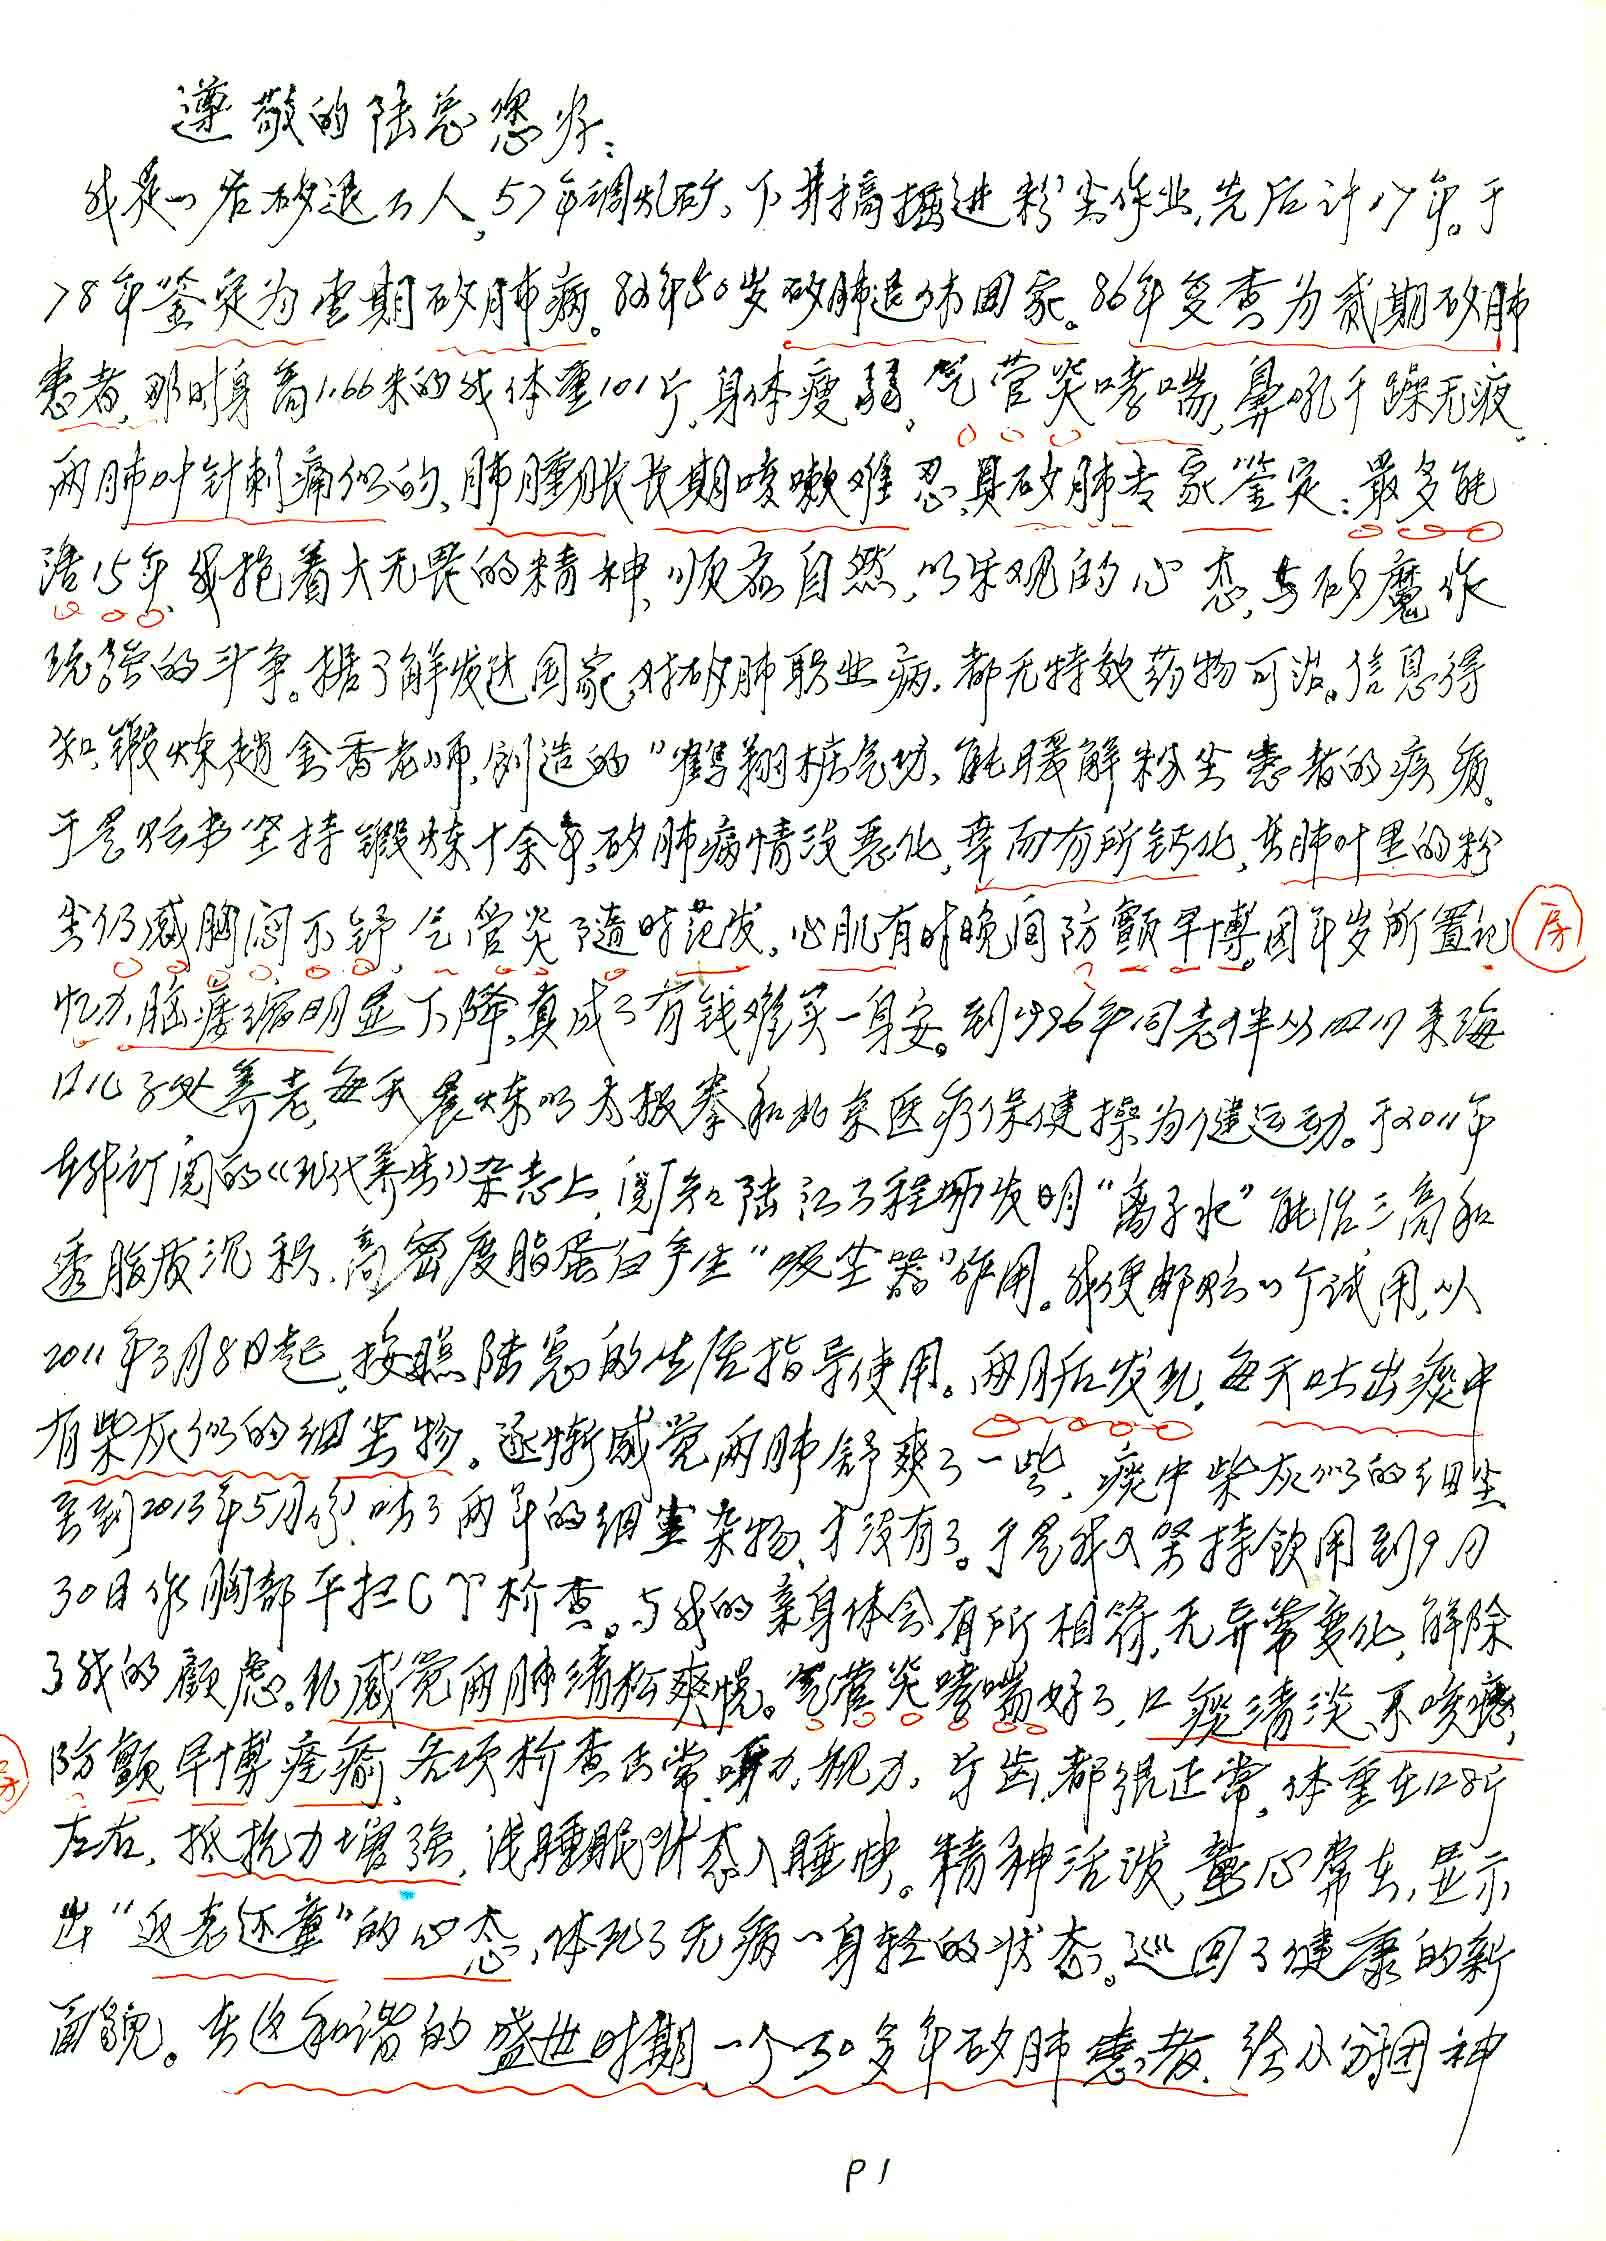 遵敬的陆总您好：
我是一名矽退工人，57年调儿矿、下井搞掘进粉尘作业，先后计17年。于
78年鉴定为壹期矽肺病。83年50岁矽肺退休回家。86年复查为贰期矽肺
患者，那时身高1.66米的我体重101斤，身体瘦弱，气管炎哮喘，鼻吼干躁无液，
两肺叶针刺痛似的、肺肿胀长期咳嗽难忍，具矽肺专家鉴定：最多能
活15年，我抱着大无畏的精神，顺应自然，以乐观的心态，与矽魔作
顽强的斗争。据了解发达国家，对矽肺职业病，都无特效药物可治。信息得
知，锻炼赵金香老师，创造的“鹤翔桩气功，能暖解粉尘患者的疾病。
于是购书坚持锻炼十余年，矽肺病情没恶化，幸而有所钙化，在肺叶里的粉
尘仍感胸闷不舒，气管炎随时范发，心肌有时晚间防颤早博，因年岁所置记
房
忆力，脑萎缩明显下降，真成了有钱难买一身安。到1996年同老伴从四川来海
口儿子处养老，每天晨炼以太极拳和北京医疗保健操为健运动。于2011年
在我订阅的《现代养生》杂志上，阅知陆江工程师发明“离子水”能治三高和
透脂质沉积，高密度脂蛋白产生“吸尘器”作用。我便邮购一个试用，从
2011年3月8日起，按照陆总的生活指导使用。两月后发现，每天吐出痰中
有柴灰似的细尘物。逐惭感觉两肺舒爽了一些，痰中柴灰似的细尘
至到2013年5月份，吐了两年的细尘杂物，才没有了。于是我又坚持饮用到9月
30日做胸部平扫CT检查。与我的亲身体会有所相符，无异常变化，解除
了我的顾虑。现感觉两肺清松爽悦。气管炎哮喘好了，口痰清淡，不咳嗽，
房
防颤早博痊愈，各项检查正常，听力，视力，牙齿，都很正常，体重在128斤
左右，抵抗力增强，浅睡眠状态入睡快。精神活泼，童心常在，显示
出“返老还童”的心态，体现了无病一身轻的状态。返回了健康的新
面貌。在这和谐的盛世时期，一个30多年矽肺患者，经小分子团神
P1